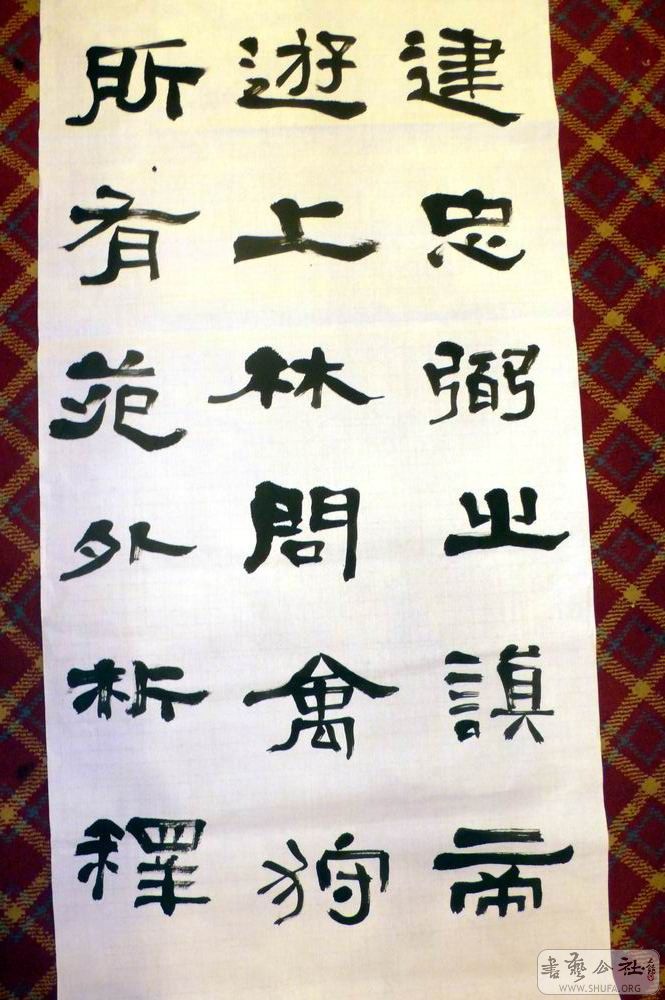 建忠弼之謨帝
遊上林問禽狩
所有苑外析釋
書藝公社
WWW.SHUFA.ORG